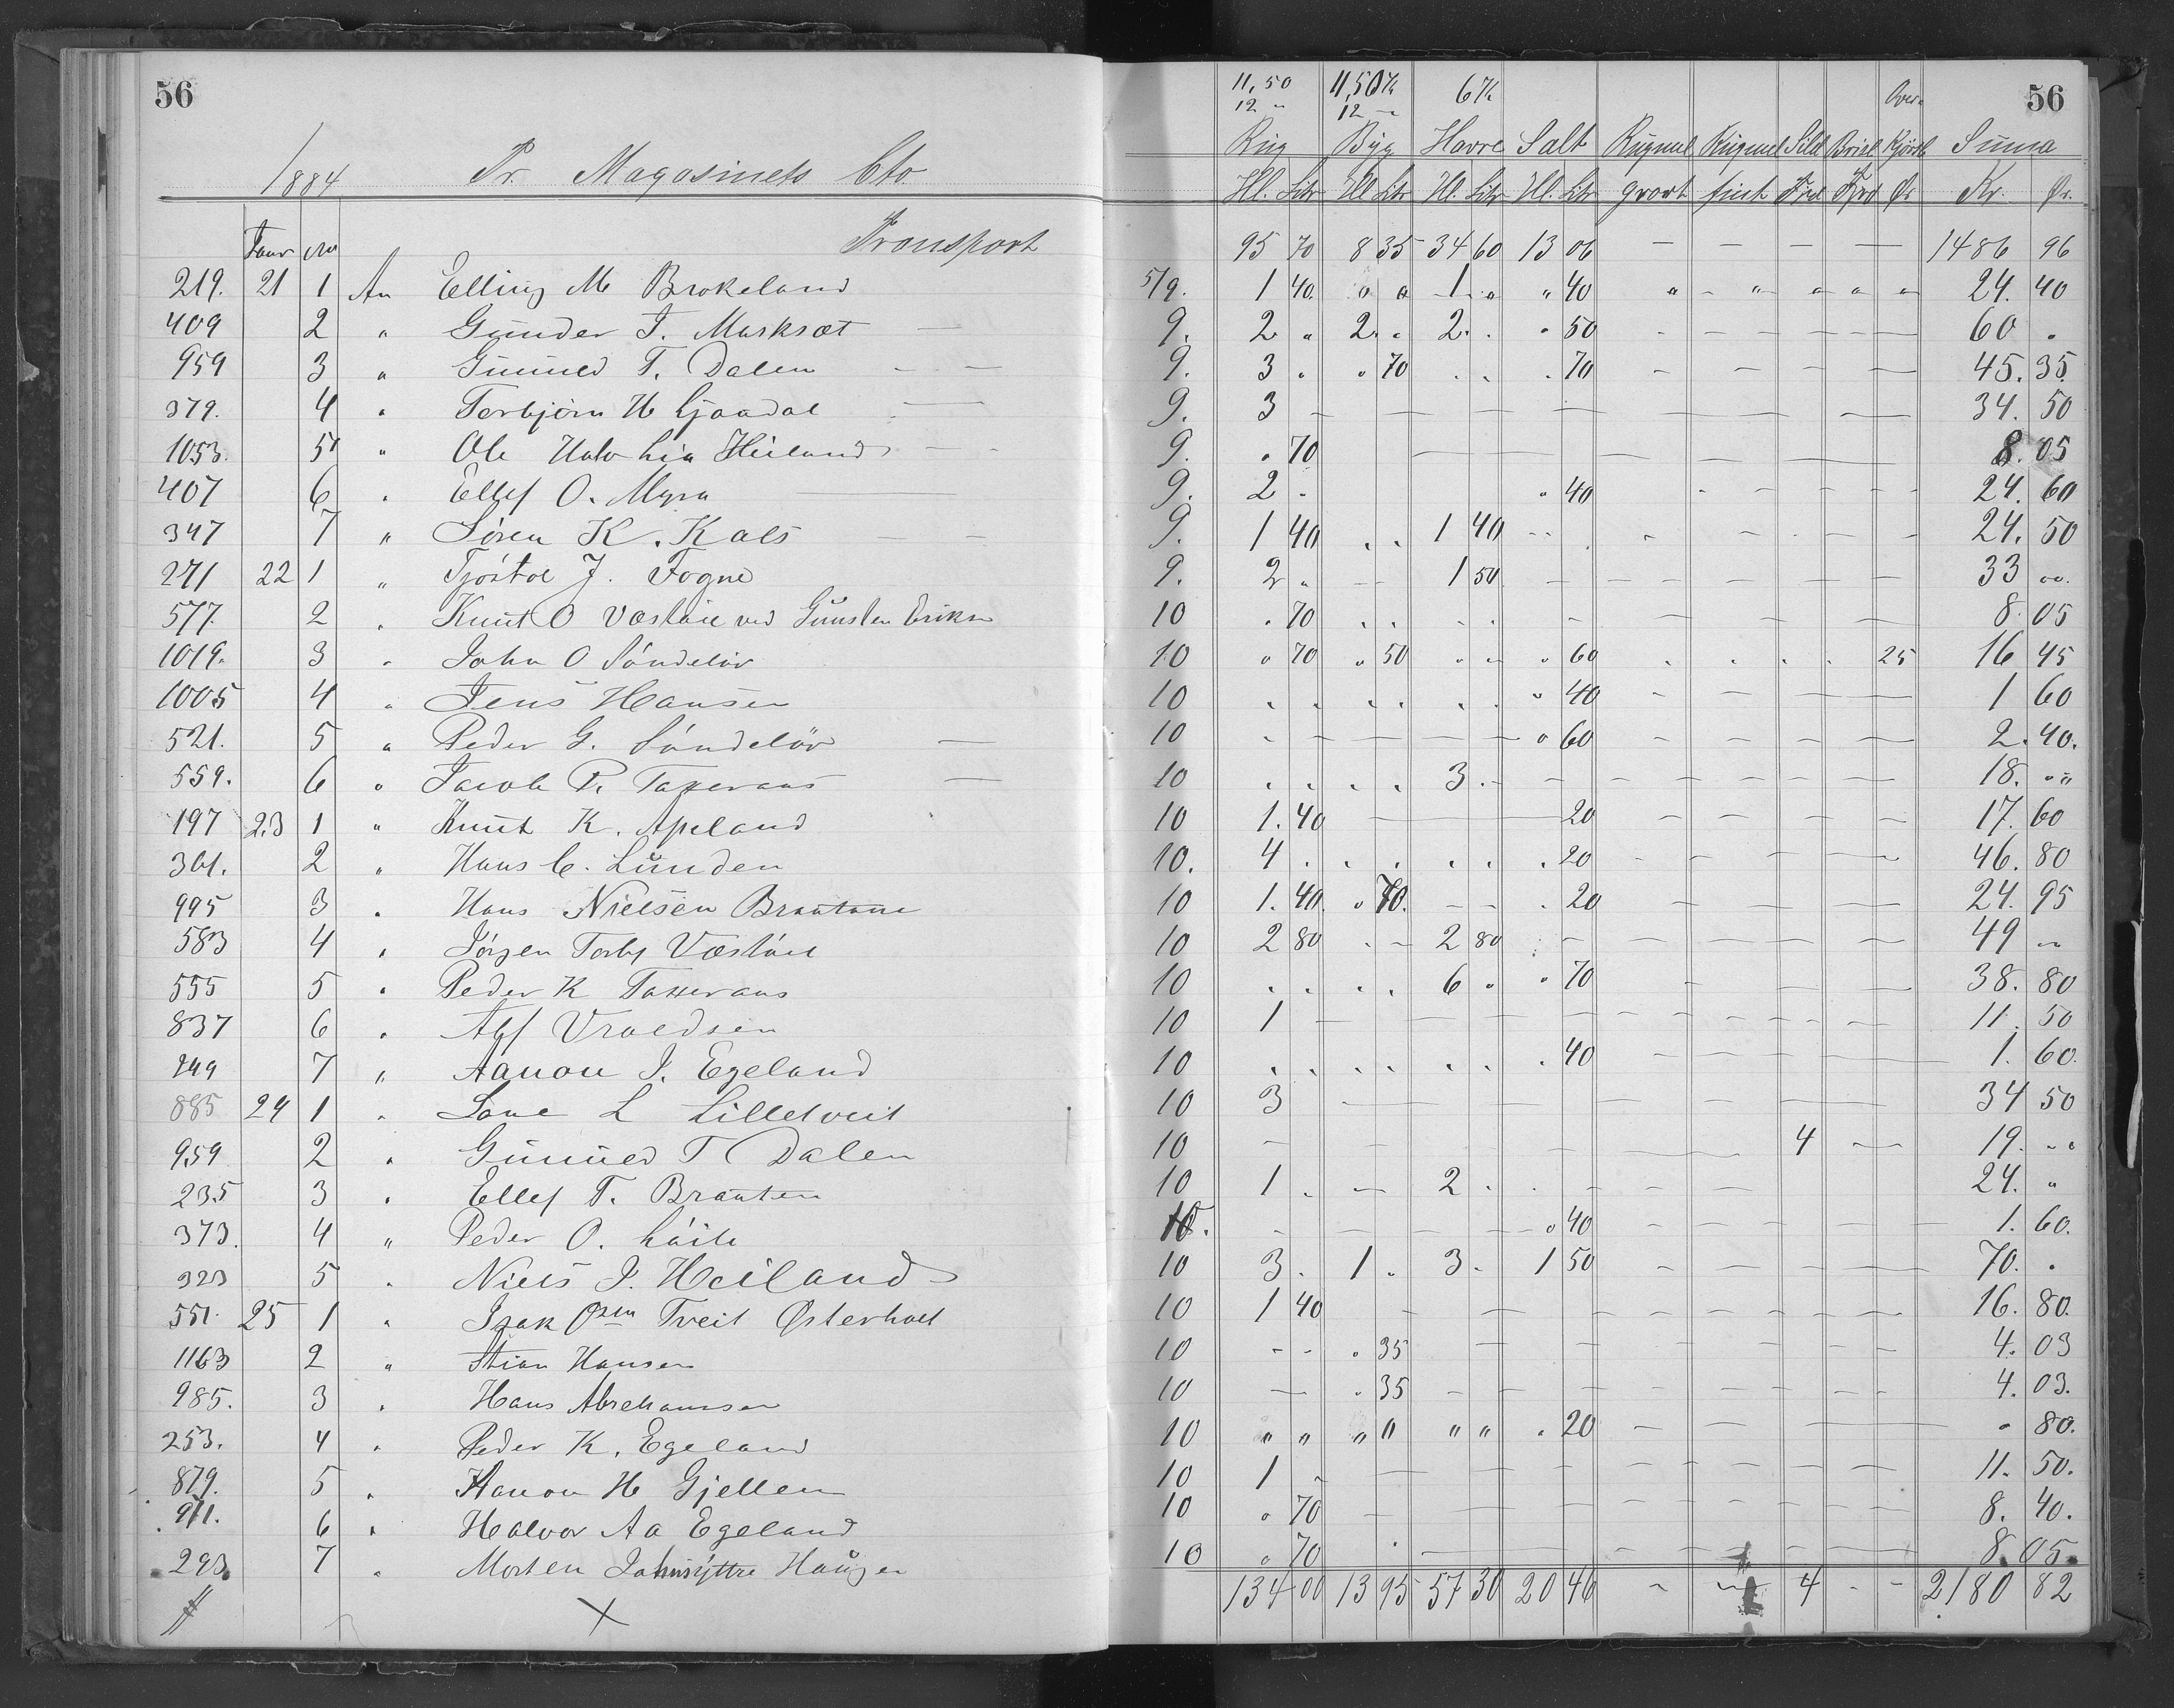 56
1884 Pr. Magasinets Cto.
Transport
219. 21 1 An Elling M Brokeland
409 2 " Gunder T. Marksæt
959 3 " Gunuld T. Dalen
379. 4 " Torbjörn H Ljaadal
1053. 5 " Ole Halv Lia Heiland
407 6 " Ellef O. Myra
347 7 " Sören K. Kals
271 22 1 " Tjöstol J. Fogne
577. 2 " Knut O Væstöil ved Gunsten Eriksn
1019. 3 " John O Söndelöv
1005 4 " Jens Hansen
521. 5 " Peder G. Söndelöv
559. 6 " Jacob P. Taxeraas
197 23 1 " Knut K. Apeland
361. 2 " Hans C. Lunden
995 3 " Hans Nielsen Brautane
583 4 " Jörgen Torbj Væstöil
555 5 " Peder K Taxeraas
837 6 " Alf Vraldsen
249 7 " Aanon J. Egeland
885 24 1 " Lane L Lilletveit
959 2 " Gunuld T Dalen
235 3 " Ellef T. Brauten
373. 4 " Peder O. Löite
323 5 " Niels J. Heiland
551. 25 1 " Isak Osen Tveit Østerholt
1163 2 " Stian Hansen
985. 3 " Hans Abrehamsen
253. 4 " Peder K. Egeland
879. 5 " Aanon H Gjellen
911. 6 " Halvor Aa Egeland
293. 7 " Morten Johnsyttre Haugen
11,50 11,50 Kr 6 Kr Over- 56
12 " 12 "
Rug Byg Havre Salt Rugmel Rugmel Sild Brisl Kjörsl Suma
Hl. Litr Hl Litr Hl. Litr Hl. Litr grovt fint Fjrd Fjrd Ør Kr. Ør.
95 70 8 35 34 60 13 06 — — — — 1486 96
5/9. 1 40. " " 1 " " 40 " " " " " 24. 40
9. 2 " 2. " 2. . " 50 - - - - - 60 "
9. 3 . " 70 . . . 70 - - - - 45. 35.
9. 3 — — — — — — — 34. 50
9. . 70 — — — — — 8. 05
9. 2 . " 40 - - - - - 24. 60
9. 1 40 . . 1 40 - - - - - 24. 50
9. 2 " — 1 50 — — — — — 33 "
10 . 70 . . - - - — — — 8. 05
10 " 70 " 50 " " " 60 . . . . 25 16 45
10 . . . . . . " 40 - - — — 1 60
10 - - - - - - " 60 - - - — 2. 40.
10 . . . . 3 . - - - - - - 18. "
10 1. 40 — — 20 - - - — 17. 60
10. 4 . . . . . . 20 - - — — 46. 80
10 1. 40. " 70. - - . 20 — — — — 24. 95
10 2 80 . - 2 80 . - - - - - 49 "
10 . . . . 6 " " 70 - — — — 38. 80
10 1 — — — — - - - - - 11. 50
10 . . . . . . . 40 - - — — 1. 60.
10 3 — — — — — — 34 50
10 - - - — 4 — 19. "
10 1 . — 2 . . - - - 24. "
10. - - - - - " 40 - - - - 1. 60.
10 3 . 1 . 3 . 1 50 - - - - 70. .
10 1 40 - - - - - - - 16. 80.
10 - - . 35 — — — — 4. 03
10 — . 35 - - - - - - - 4. 03.
10 " " " " " " . 20 - - - — " 80.
10 1 - — — — - - - — 11. 50.
10 " 70 - — — - - - - 8. 40.
10 " 70 . — — — — 8. 05.
134 00 13 95 57 30 20 46 - - 4 - - 2180 82